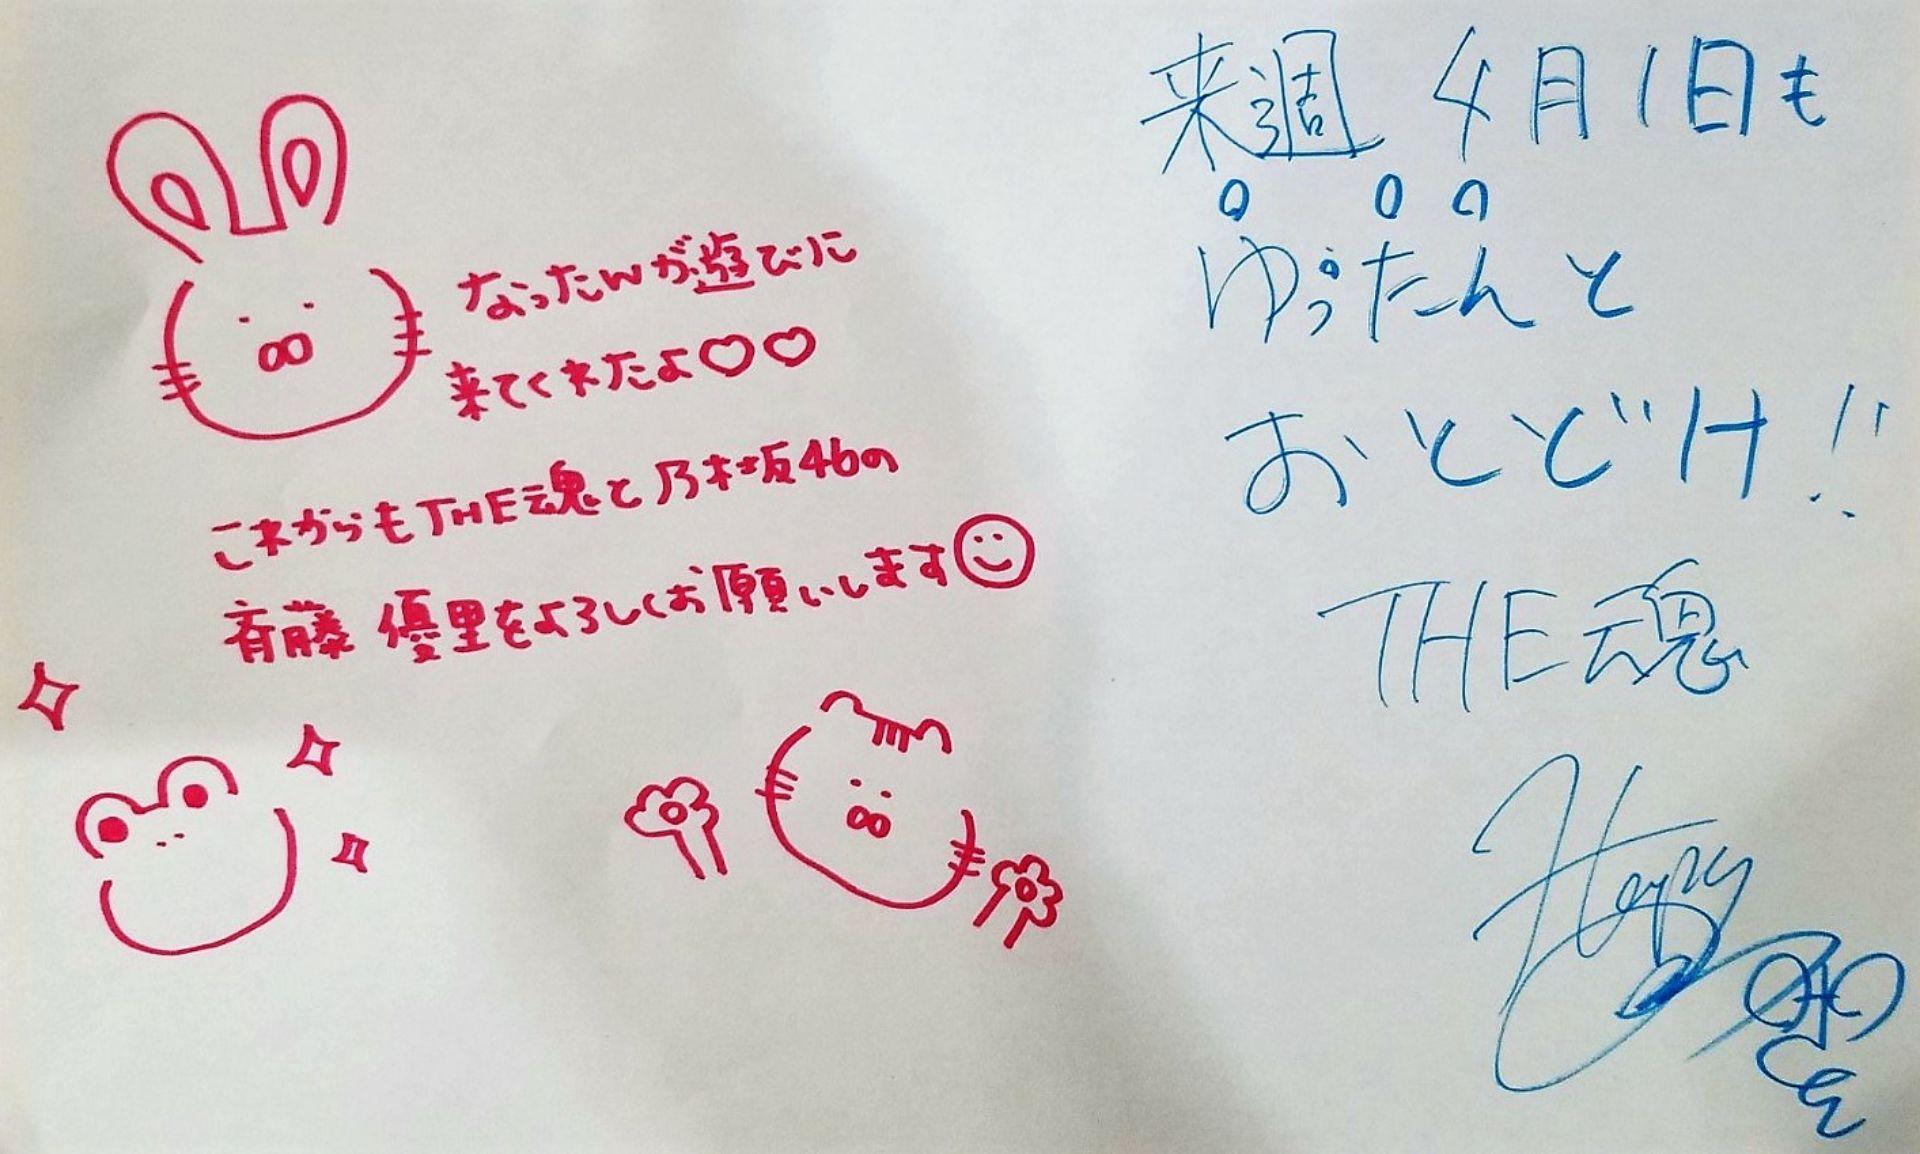 なったんが遊びに
来てくれたよ♡♡
これからもTHE魂と乃木坂46の
斉藤 優里をよろしくお願いします
来週 4月1日も
ゆぅたんと
おとどけ!!
THE魂